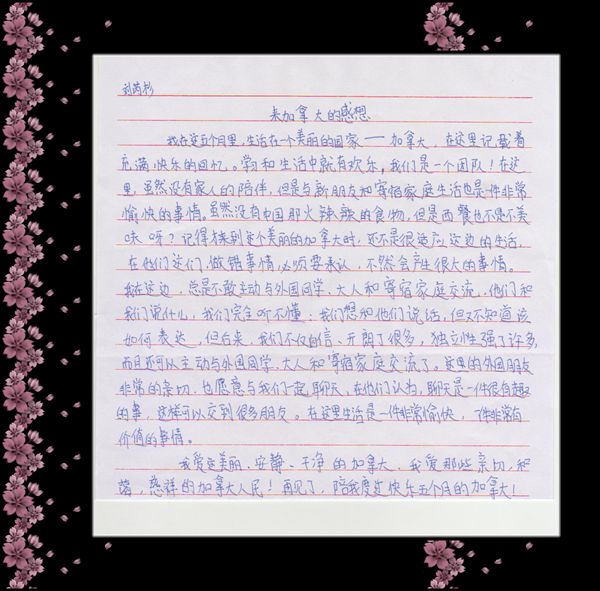 刘芮杉
来加拿大的感想
我在这五个月里，生活在一个美丽的国家——加拿大，在这里记载着
充满快乐的回忆。学习和生活中就有欢乐，我们是一个团队！在这
里，虽然没有家人的陪伴，但是与新朋友和寄宿家庭生活也是一件非常
愉快的事情。虽然没有中国那火辣辣的食物，但是西餐也不是不美
味呀？记得才来到这个美丽的加拿大时，还不是很适应这边的生活，
在他们这们，做错事情必须要承认，不然会产生很大的事情。
我在这边，总是不敢主动与外国同学、大人和寄宿家庭交流，他们和
我们说什么，我们完全听不懂；我们想和他们说话，但又不知道该
如何表达，但后来，我们不仅自信、开朗了很多，独立性强了许多，
而且还可以主动与外国同学、大人和寄宿家庭交流了。这里的外国朋友
非常的亲切，也愿意与我们一起聊天，在他们认为，聊天是一件很有趣
的事，这样可以交到很多朋友。在这里生活是一件非常愉快，一件非常有
价值的事情。
我爱这美丽、安静、干净的加拿大，我爱那些亲切、和
蔼，慈祥的加拿大人民！再见了，陪我度过快乐五个月的加拿大！